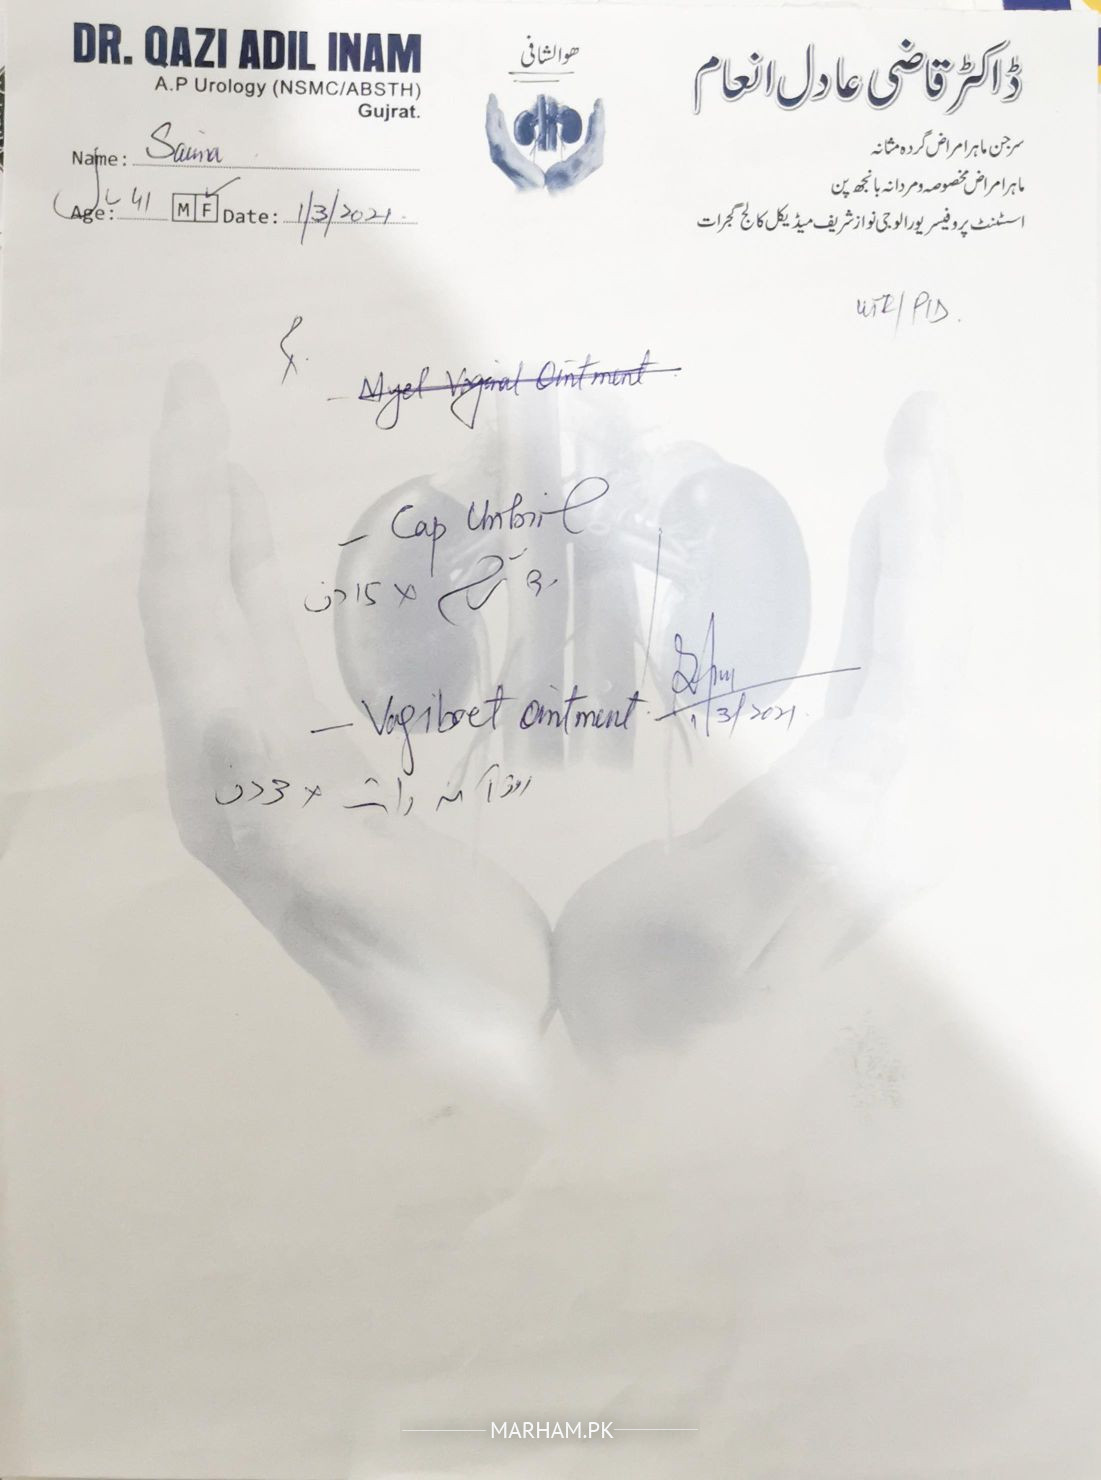 DR. QAZI ADIL INAM
A.P Urology (NSMC/ABSTH)
Gujrat.
ھوالشافی
ڈاکٹر قاضی عادل انعام
سرجن ماہر امراض گردہ مثانہ
ماہر امراض مخصوصہ و مردانہ بانجھ پن
اسسٹنٹ پروفیسر یورالوجی نواز شریف میڈیکل کالج گجرات
Name: Saima
Age: 41 سال M F Date: 1/3/2021.
UTI/PID.
Vaginal Ointment
- Cap
صبح شام × 15 دن
- Ointment
1/3/2021.
روزانہ رات × 3 دن
MARHAM.PK